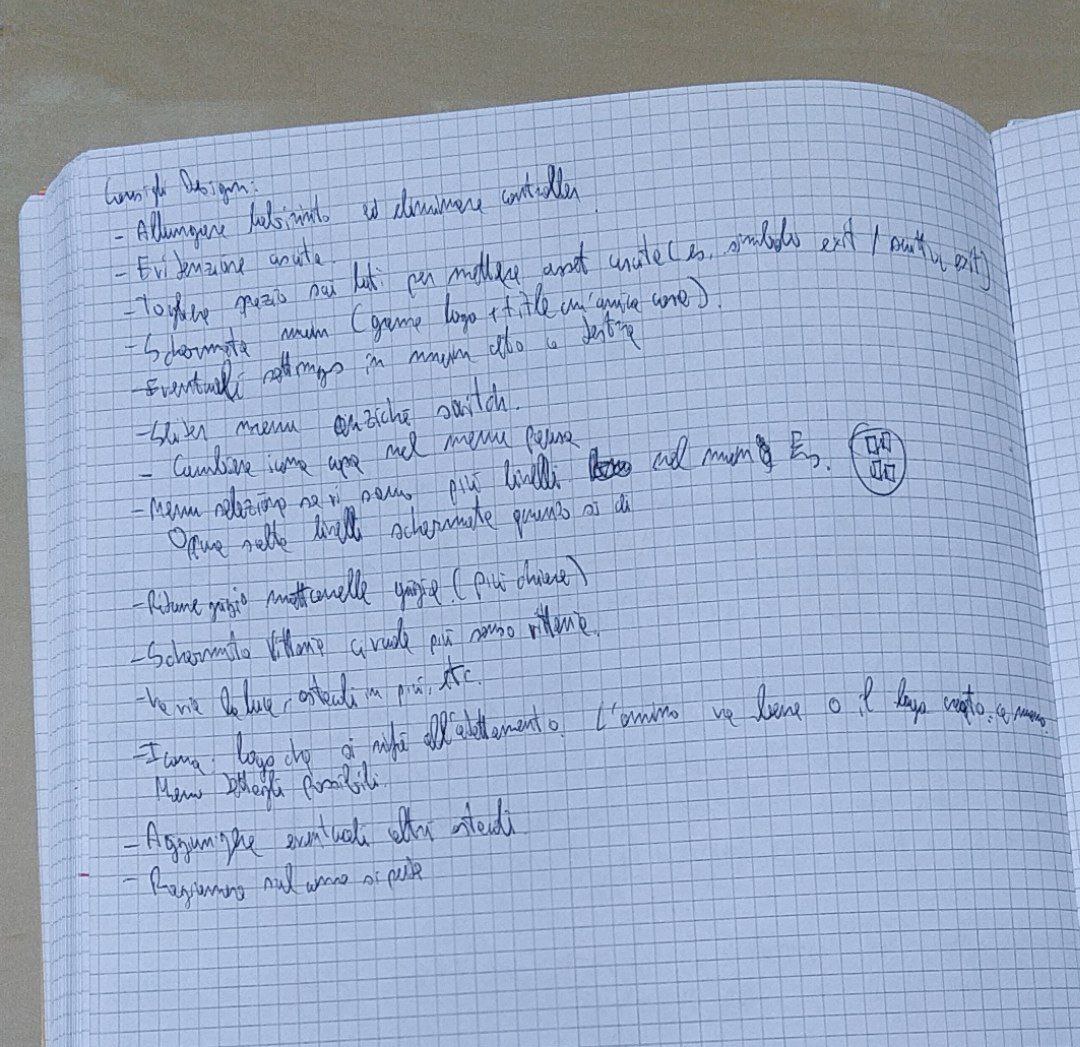 Consigli Design:
- Allungare labirinto ed eliminare controller.
- Evidenziare uscita.
- Togliere spazio sui lati per mettere asset uscita (es. simbolo exit / scritta exit)
- Schermata menu (game logo + title un'unica cosa).
- Eventuali settings in menu alto a destra
- Slider menu anziché switch.
- Cambiare icona nel menu pausa
- Menu selezione se vi sono più livelli nel menu Es.
Oppure salta livelli schermata quando si
- Ridurre grigio mattonelle grigie. (più chiare)
- Schermata Vittoria più senso vittoria.
- luce, ostacoli in più, etc.
- Icona: logo che si all'adattamento. L'omino va bene o il logo
Meno dettagli possibili.
- Aggiungere eventuali altri ostacoli
- sul come si perde